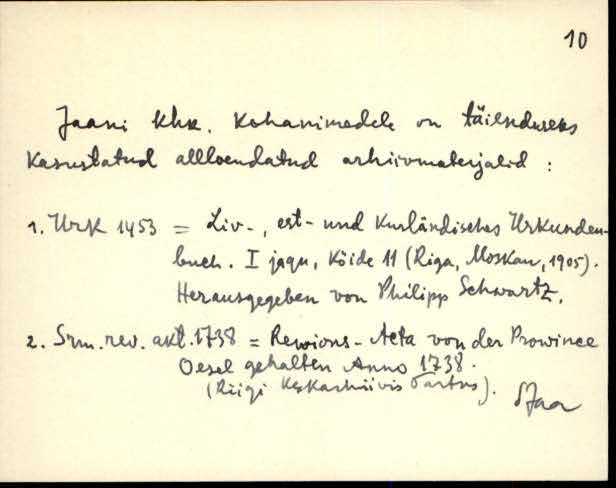 10
Jaani khk. Kohanimedele on täienduseks
kasustatud alloendatud arhiivmaterjalid :
1. UrK 1453 = Liv-, est- und Kurländisches Urkunden-
buch. I jagu, Köide 11 (Riga, Moskau, 1905).
Herausgegeben von Philipp Schwartz.
2. Srm. rev. akt. 1738 = Revisions-Acta von der Prowince
Oesel gehalten Anno 1738.
(Riigi Keskarhiivis Tartus).